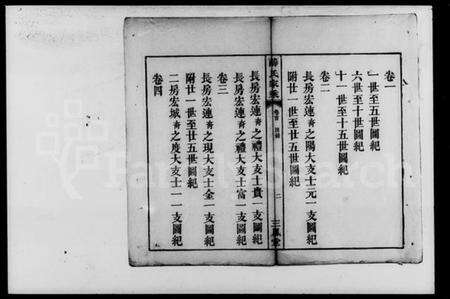 卷一
一世至五世圖紀
六世至十世圖紀
十一世至十五世圖紀
卷二
長房宏連青之陽大支士元一支圖紀
附廿一世至廿五世圖紀
氏家乘
卷首
二
三鳳堂
長房宏連青之禮大支士貴一支圖紀
長房宏連青之禮大支士富一支圖紀
卷三
長房宏連青之現大支士金一支圖紀
附廿一世至廿五世圖紀
二房宏城青之度大支士一一支圖紀
卷四
FamilySearch